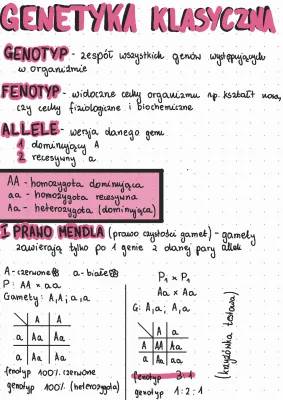 GENETYKA KLASYCZNA
GENOTYP - zespół wszystkich genów występujących
w organizmie
FENOTYP - widoczne cechy organizmu np. kształt nosa,
czy cechy fizjologiczne i biochemiczne
ALLELE - wersja danego genu
1 dominujący A
2 recesywny a
AA - homozygota dominująca
aa - homozygota recesywna
Aa - heterozygota (dominująca)
I PRAWO MENDLA (prawo czystości gamet) - gamety
zawierają tylko po 1 genie z danej pary alleli
A - czerwone a - białe
P: AA × aa
Gamety: A, A; a, a
A A
a Aa Aa
a Aa Aa
fenotyp 100% czerwone
genotyp 100% (heterozygota)
P₁ × P₁
Aa × Aa
G: A, a; A, a
A a
A AA Aa
a Aa aa
fenotyp 3:1
genotyp 1:2:1
(krzyżówka testowa)